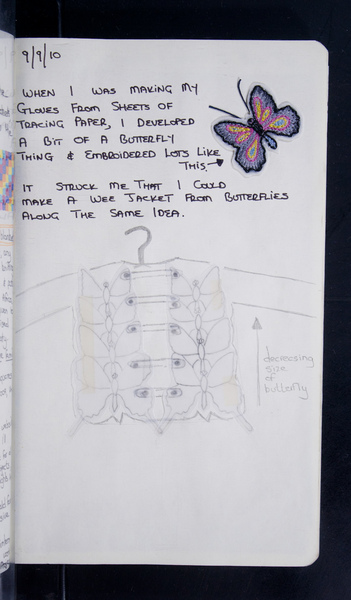 9/9/10
WHEN I WAS MAKING MY
GLOVES FROM SHEETS OF
TRACING PAPER, I DEVELOPED
A BIT OF A BUTTERFLY
THING & EMBROIDERED LOTS LIKE
THIS.
IT STRUCK ME THAT I COULD
MAKE A WEE JACKET FROM BUTTERFLIES
ALONG THE SAME IDEA.
decreasing
size
of
butterfly